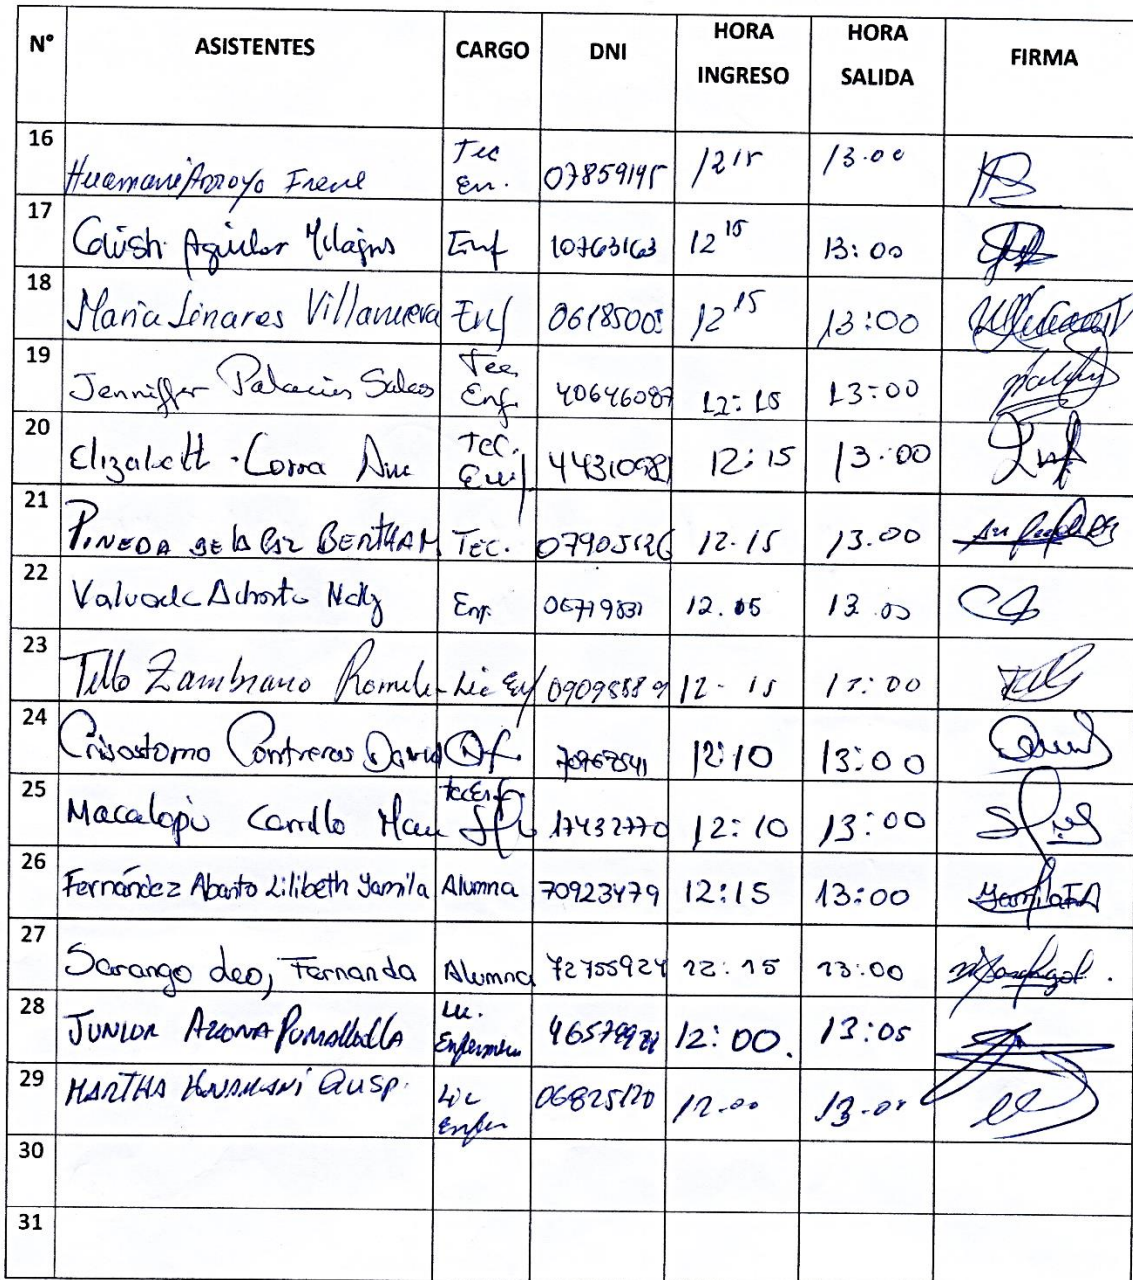 N° ASISTENTES CARGO DNI HORA INGRESO HORA SALIDA FIRMA
16 Huamani Arroyo Irene Tec En. 07859145 12 15 13.00
17 Aguilar Milagros Enf 10763163 12 15 13:00
18 Maria Linares Villanueva Enf 0618500 12 15 13:00
19 Jenniffer Palacios Salas Tec. Enf. 40646087 12:15 13:00
20 Elizabett Tec. Enf. 44310981 12:15 13.00
21 PINEDA DE LA PAZ BERTHA M TEC. 07905126 12.15 13.00
22 Enf 06719831 12.05 13.00
23 Tello Zambrano Lic Enf 09098889 12-15 13:00
24 Crisostomo Contreras David 12:10 13:00
25 Macalopú Carrillo Tec Enf. 17432770 12:10 13:00
26 Fernández Abanto Lilibeth Yamila Alumna 70923479 12:15 13:00
27 Sarango Leo, Fernanda Alumna 72755924 12:15 13:00
28 JUNIOR Lic. Enfermero 12:00. 13:05
29 MARTHA HUAMANÍ QUISP. Lic Enfer 06825120 12.00 13.00
30
31